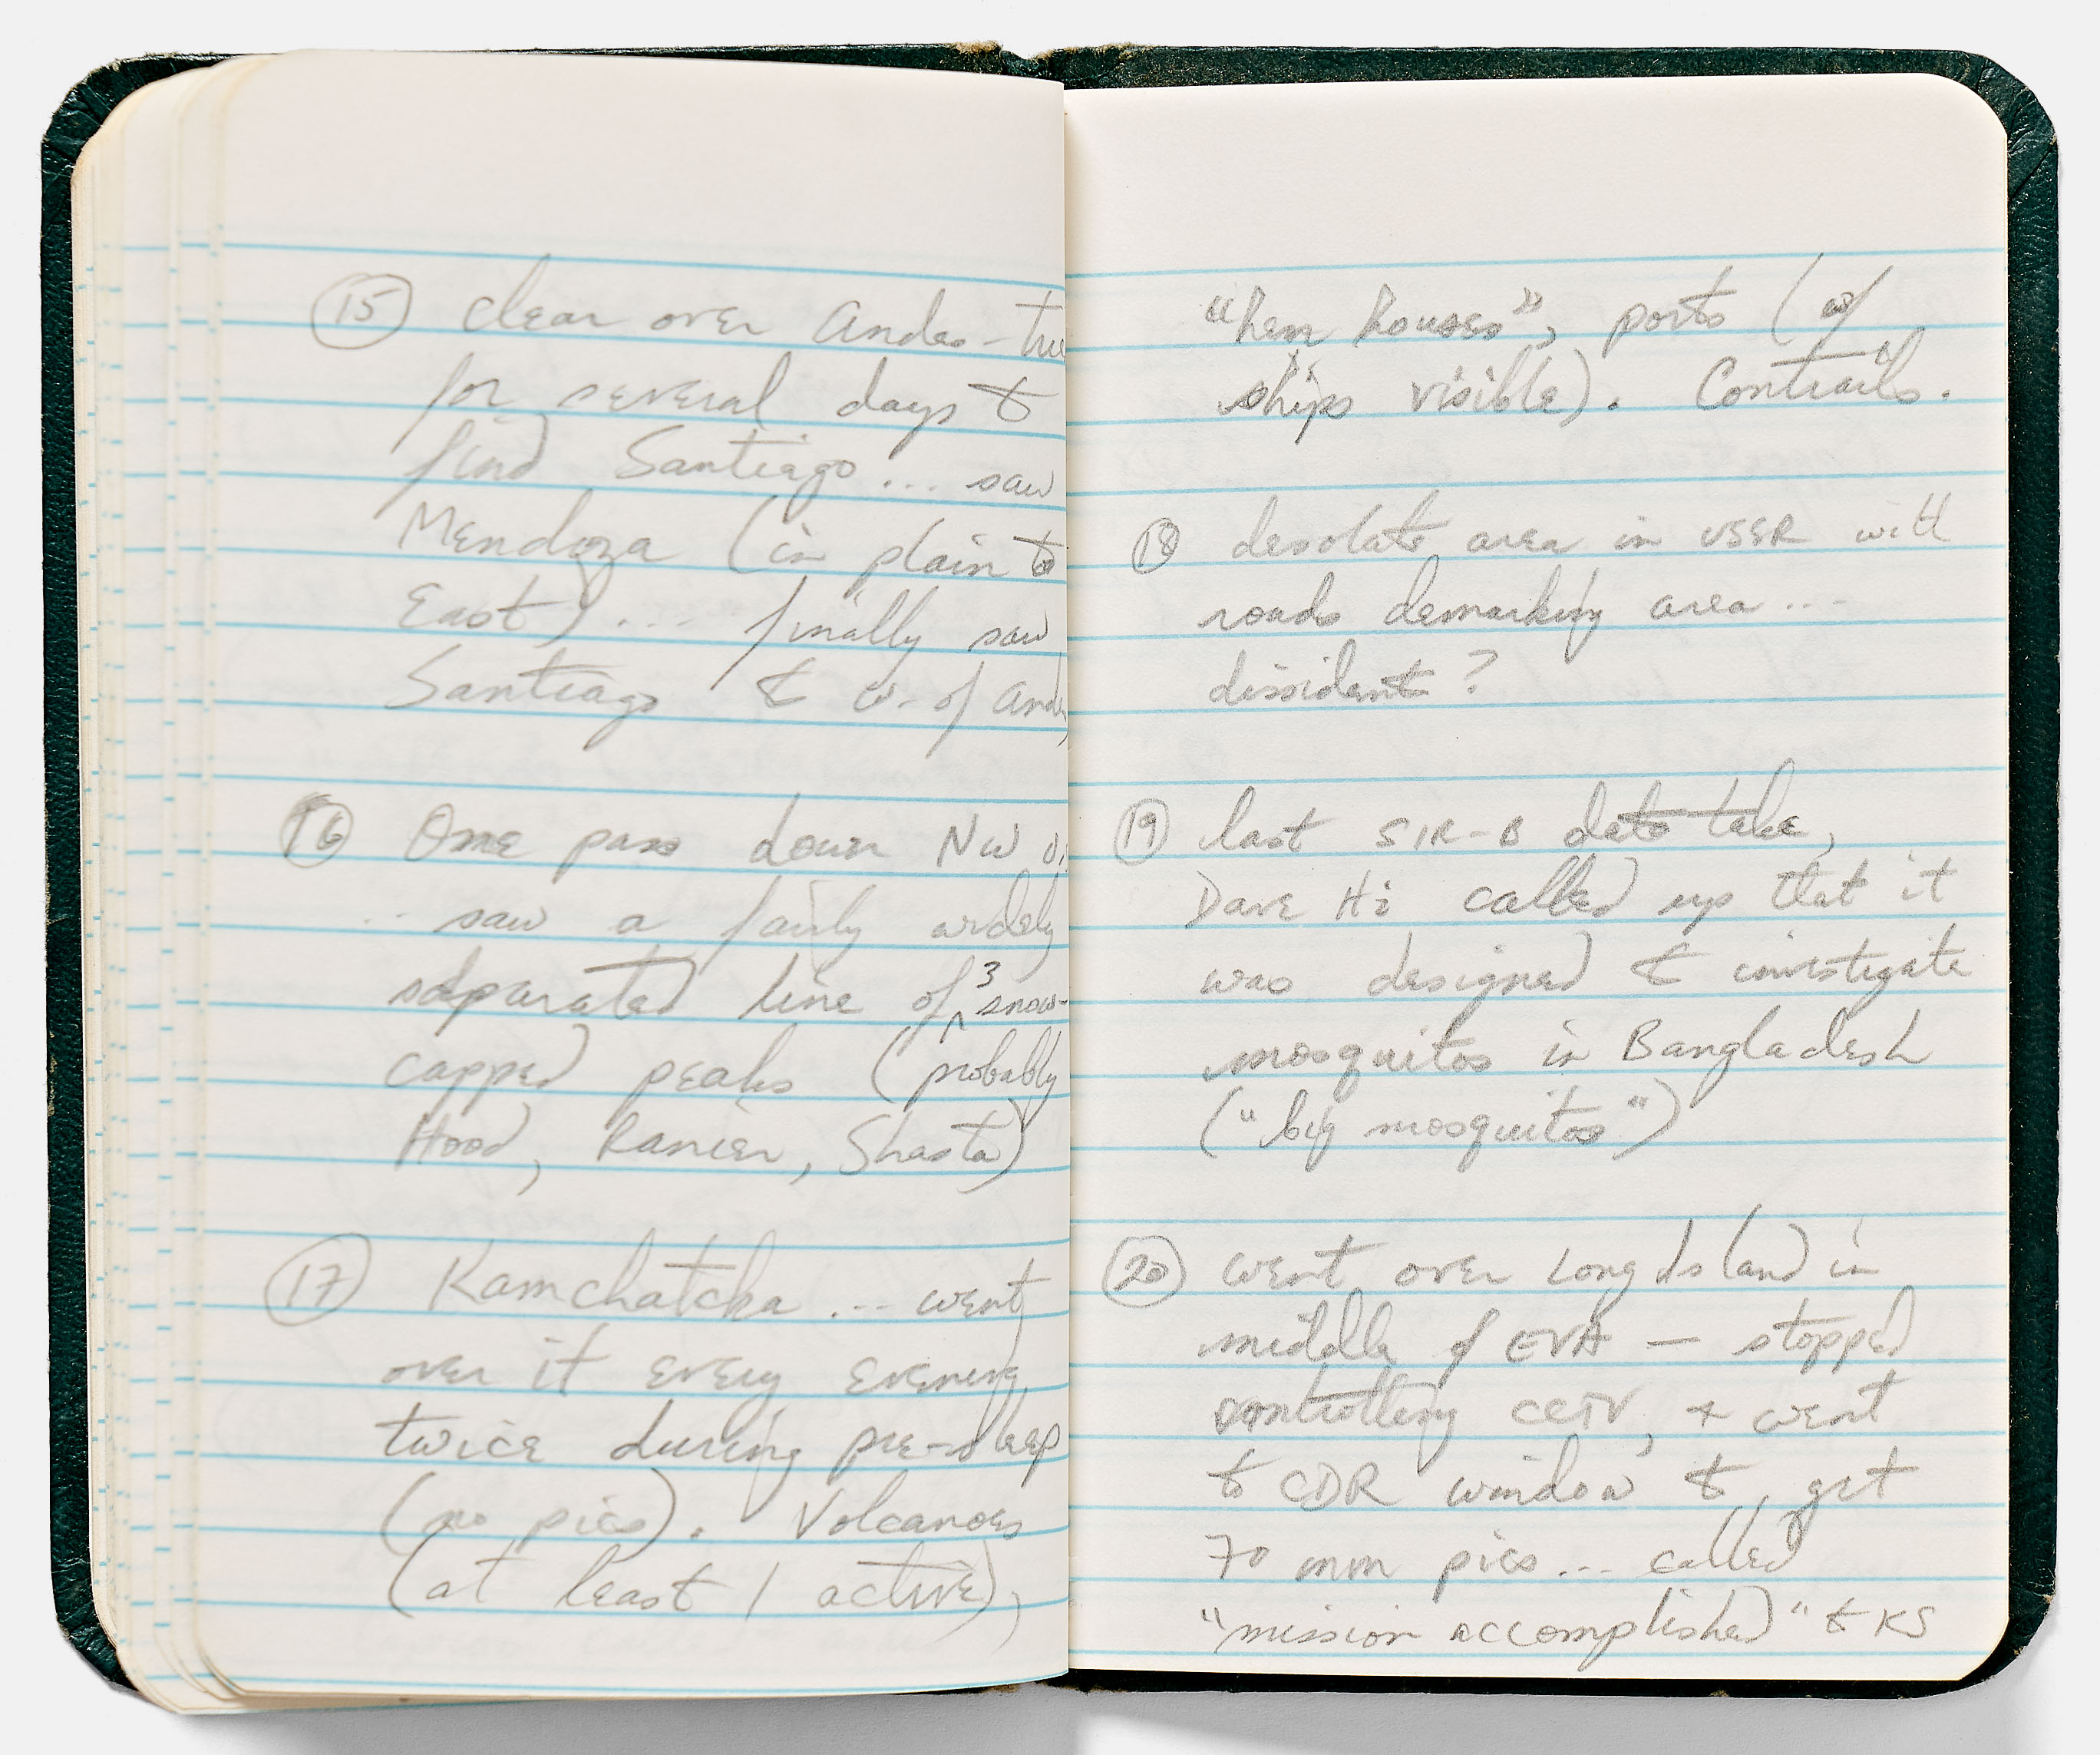 (15) clear over Andes - tri
for several days to
find Santiago ... saw
Mendoza (in plain to
East) ... finally saw
Santiago & w. of And
(16) One pass down NW
.. saw a fairly widely
separated line of ^3 snow-
capped peaks (probably
Hood, Ranier, Shasta)
(17) Kamchatcka ... went
over it every evening,
twice during pre-sleep
(no pics). Volcanoes
(at least 1 active),
"hen houses", ports (w/
ships visible). Contrails.
(18) desolate area in USSR with
roads demarking area ...
dissident?
(19) last SIR-B data take,
Dave Hi called up that it
was designed to investigate
mosquitos in Bangladesh
("big mosquitos")
(20) went over Long Island in
middle of EVA — stopped
controlling CCTV, & went
to CDR window to get
70 mm pics ... called
"mission accomplished" to KS